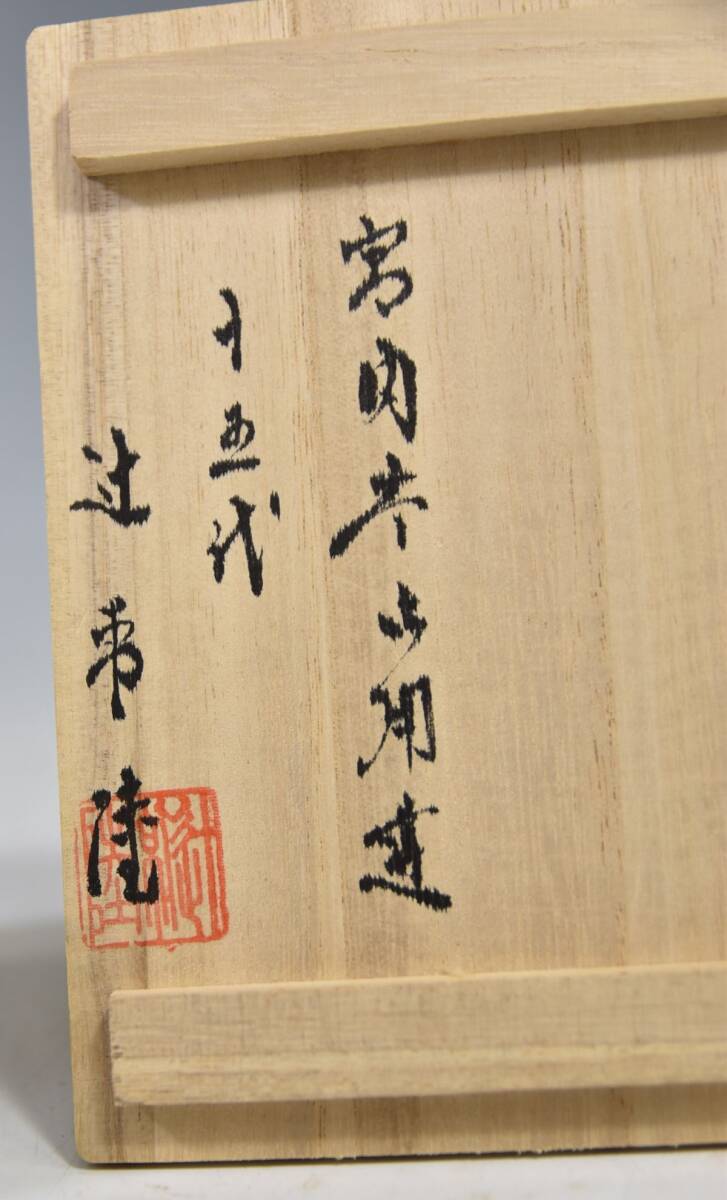 宮内庁御用達
十五代
辻常陸